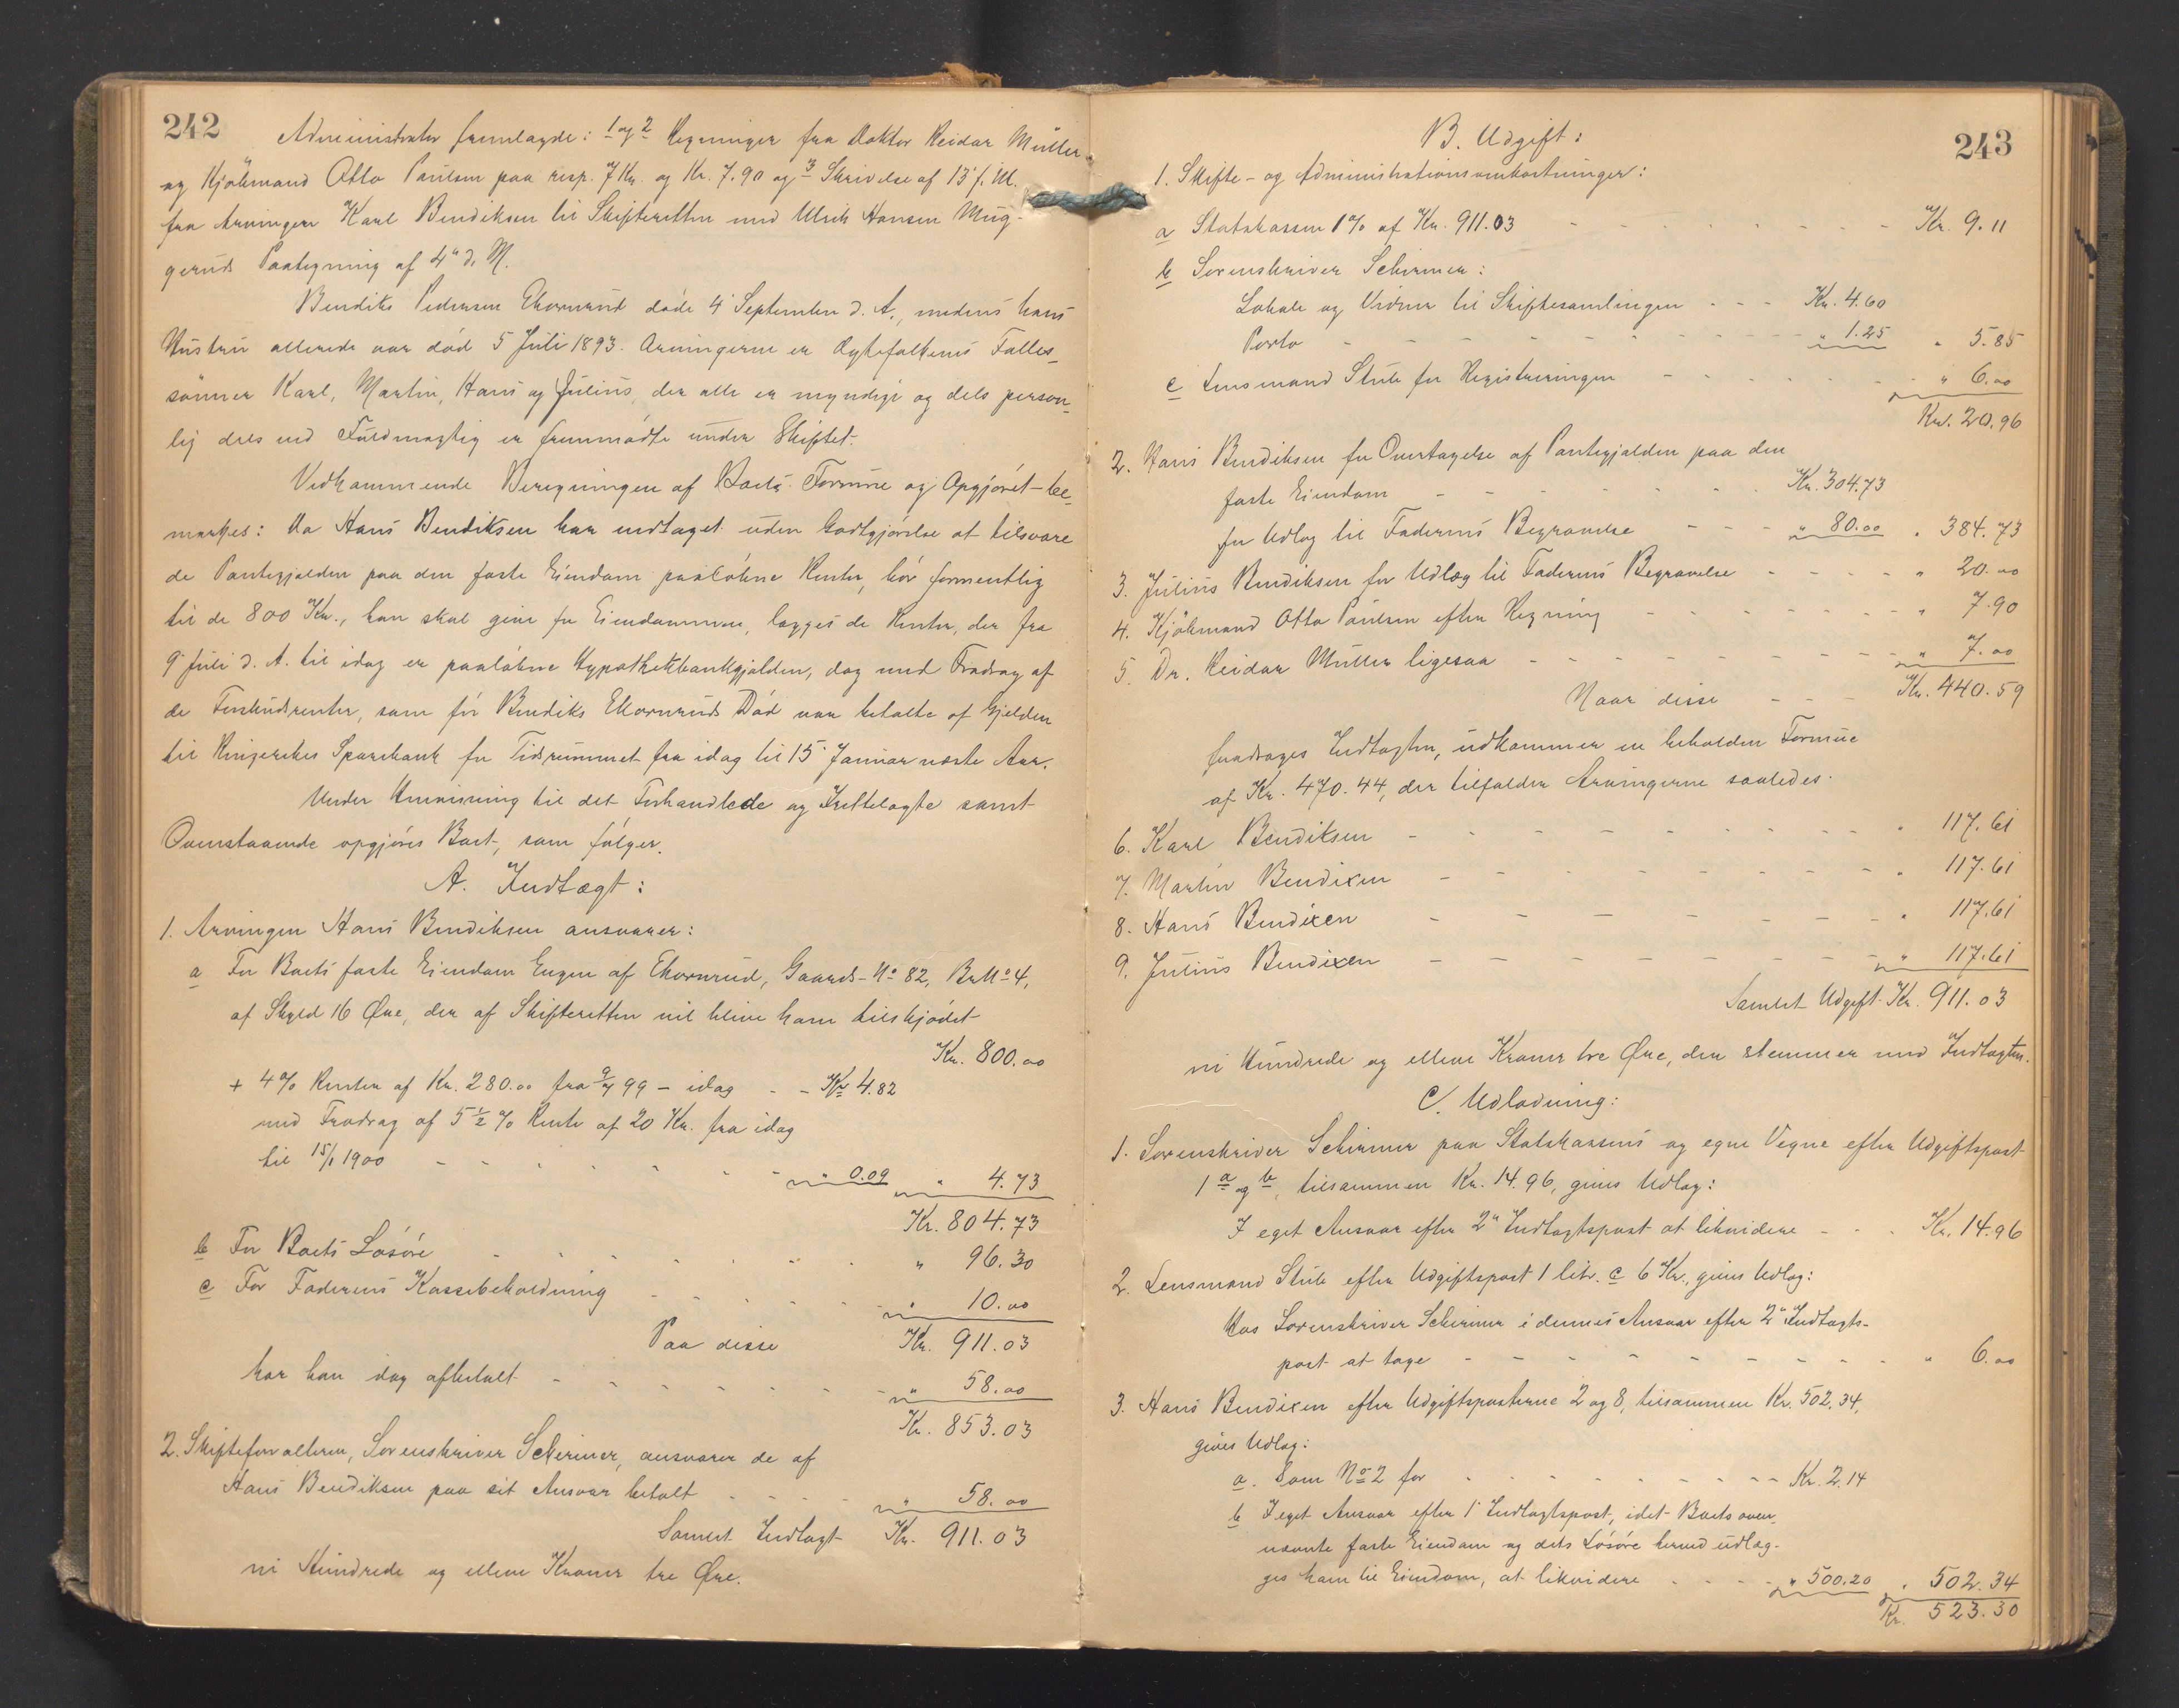 242
Administrator fremlagde: 1 og 2 Regninger fra Doktor Reidar Müller
og Kjøbmand Otto Paulsen paa resp. 7 Kr. og Kr. 7.90 og 3 Skrivelse af 13' f. M.
fra Arvingen Karl Bendiksen til Skifteretten med Ulrik Hansen Mug-
geruds Paategning af 4' d. M.
Bendiks Pedersen Ekornrud døde 4' September d. A., medens hans
Hustru allerede var død 5 Juli 1893. Arvingerne er Ægtefolkenes Fælles-
sønner Karl, Martin, Hans og Julius, der alle er myndige og dels person-
lig dels ved Fuldmægtig er fremmødte under Skiftet.
Vedkommende Beregningen af Boets Formue og Opgjøret be-
mærkes: Da Hans Bendiksen har vedtaget uden Godtgjørelse at tilsvare
de Pantegjælden paa den faste Eiendom paaløbne Renter, bør formentlig
til de 800 Kr., han skal give for Eiendommen, lægges de Renter, der fra
9' Juli d. A. til idag er paaløbne Hypothekbankgjælden, dog med Fradrag af
de Forskudsrenter, som før Bendiks Ekornruds Død var betalte af Gjælden
til Ringerikes Sparebank for Tidsrummet fra idag til 15' Januar næste Aar.
Under Henvisning til det Forhandlede og Irettelagte samt
Ovenstaaende opgjøres Boet, som følger.
A. Indtægt:
1. Arvingen Hans Bendiksen ansvarer:
a For Boets faste Eiendom Engen af Ekornrud, Gaards-No 82, BrNo 4,
af Skyld 16 Øre, der af Skifteretten vil blive ham tilskjødet
Kr. 800.00
+ 4% Renter af Kr. 280.00 fra 9/7 99 - idag - - Kr 4.82
med Fradrag af 5 1/2 % Rente af 20 Kr. fra idag
til 15/1 1900 - - - - - - - " 0.09 " 4.73
Kr. 804.73
b For Boets Løsøre - - - - - - " 96.30
c For Faderens Kassebeholdning - - - - - " 10.00
Paa disse Kr. 911.03
har han idag afbetalt - - - - - - " 58.00
Kr. 853.03
2. Skifteforvalteren, Sorenskriver Schirmer, ansvarer de af
Hans Bendiksen paa sit Ansvar betalt - - - - " 58.00
Samlet Indtægt Kr. 911.03
ni Hundrede og elleve Kroner tre Øre.
243
B. Udgift:
1. Skifte- og Administrationsomkostninger:
a Statskassen 1% af Kr. 911.03 - - - - - - - Kr. 9.11
b Sorenskriver Schirmer:
Lokale og Vidner til Skiftesamlingen - - - Kr. 4.60
Porto - - - - - - - - " 1.25 " 5.85
c Lensmand Stub for Registreringen - - - - - " 6.00
Kr. 20.96
2. Hans Bendiksen for Overtagelse af Pantegjælden paa den
faste Eiendom - - - - - - Kr. 304.73
for Udlæg til Faderens Begravelse - - - " 80.00 " 384.73
3. Julius Bendiksen for Udlæg til Faderens Begravelse - - - - " 20.00
4. Kjøbmand Otto Paulsen efter Regning - - - - - - " 7.90
5. Dr. Reidar Müller ligesaa - - - - - - - " 7.00
Naar disse - - Kr. 440.59
fradrages Indtægten, udkommer en beholden Formue
af Kr. 470.44, der tilfalder Arvingerne saaledes.
6. Karl Bendiksen - - - - - - - - " 117.61
7. Martin Bendixen - - - - - - - - " 117.61
8. Hans Bendixen - - - - - - - " 117.61
9. Julius Bendixen - - - - - - - - " 117.61
Samlet Udgift Kr. 911.03
ni Hundrede og elleve Kroner tre Øre, der stemmer med Indtægten.
C. Udlodning:
1. Sorenskriver Schirmer paa Statskassens og egne Vegne efter Udgiftspost
1 a og b, tilsammen Kr. 14.96, gives Udlæg:
I eget Ansvar efter 2' Indtægtspost at likvidere - - - Kr. 14.96
2. Lensmand Stub efter Udgiftspost 1 litr. c 6 Kr., gives Udlæg:
Hos Sorenskriver Schirmer i dennes Ansvar efter 2' Indtægts-
post at tage - - - - - - - - - " 6.00
3. Hans Bendixen efter Udgiftsposterne 2 og 8, tilsammen Kr. 502.34,
gives Udlæg:
a. Som No 2 for - - - - - - - - Kr. 2.14
b I eget Ansvar efter 1' Indtægtspost, idet Boets oven-
nævnte faste Eiendom og dets Løsøre herved udlæg-
ges ham til Eiendom, at likvidere - - - - " 500.20 " 502.34
Kr. 523.30